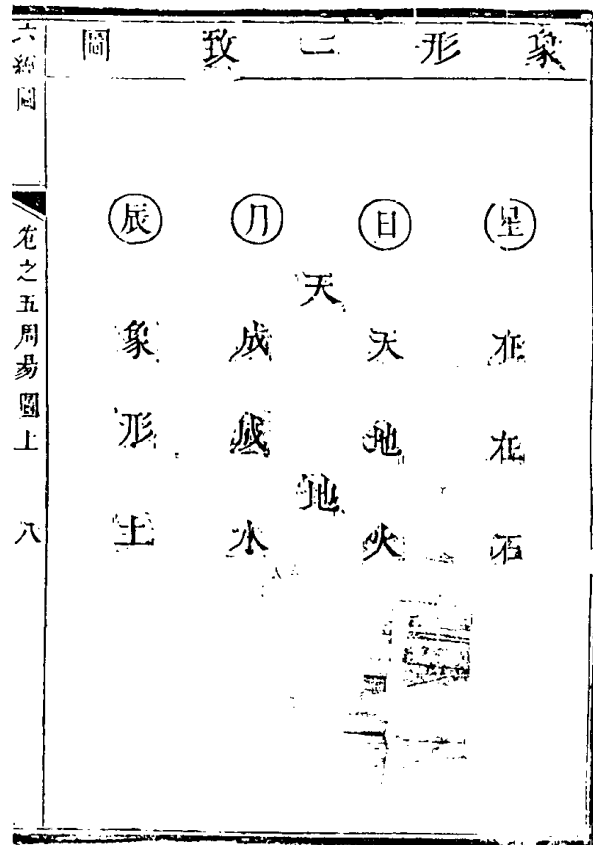 象形二致圖
星日月辰
天
在天成象
在地成形
地
石火水土
六經圖
卷之五周易圖上
八